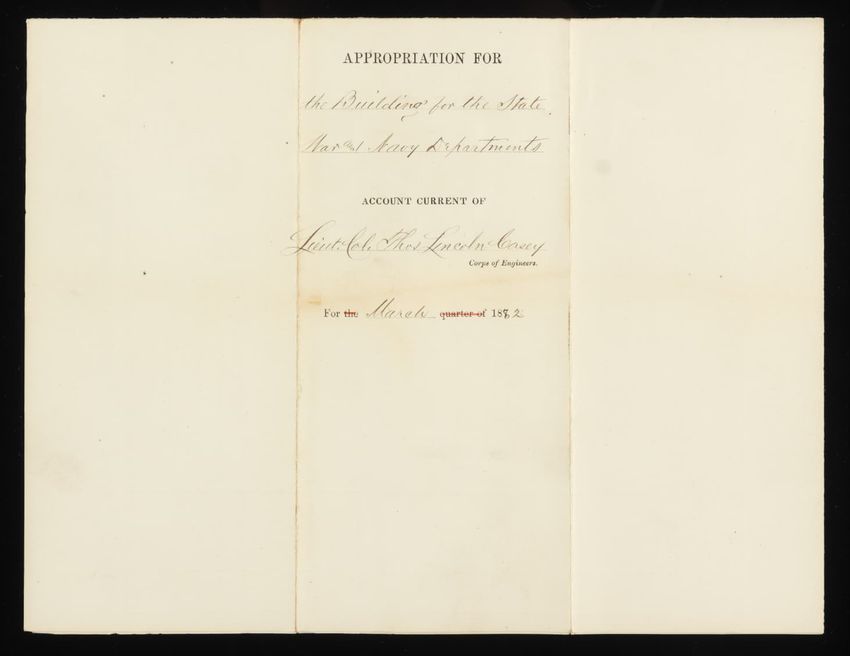 APPROPRIATION FOR
the Building for the State,
War and Navy Departments
ACCOUNT CURRENT OF
Lieut. Col. Thos Lincoln Casey
Corps of Engineers.
For the March quarter of 1882